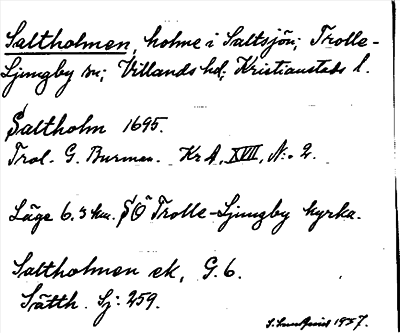 Saltholmen, holme i Saltsjön; Trolle-
Ljungby sn; Villands hd; Kristianstads l.
Saltholm 1695.
Trol. G. Burman. Kr A, XVII, N:o 2.
Läge 6.3 km. SO Trolle-Ljungby kyrka.
Saltholmen ek, G. 6.
Sätth. Sj: 259.
1927.